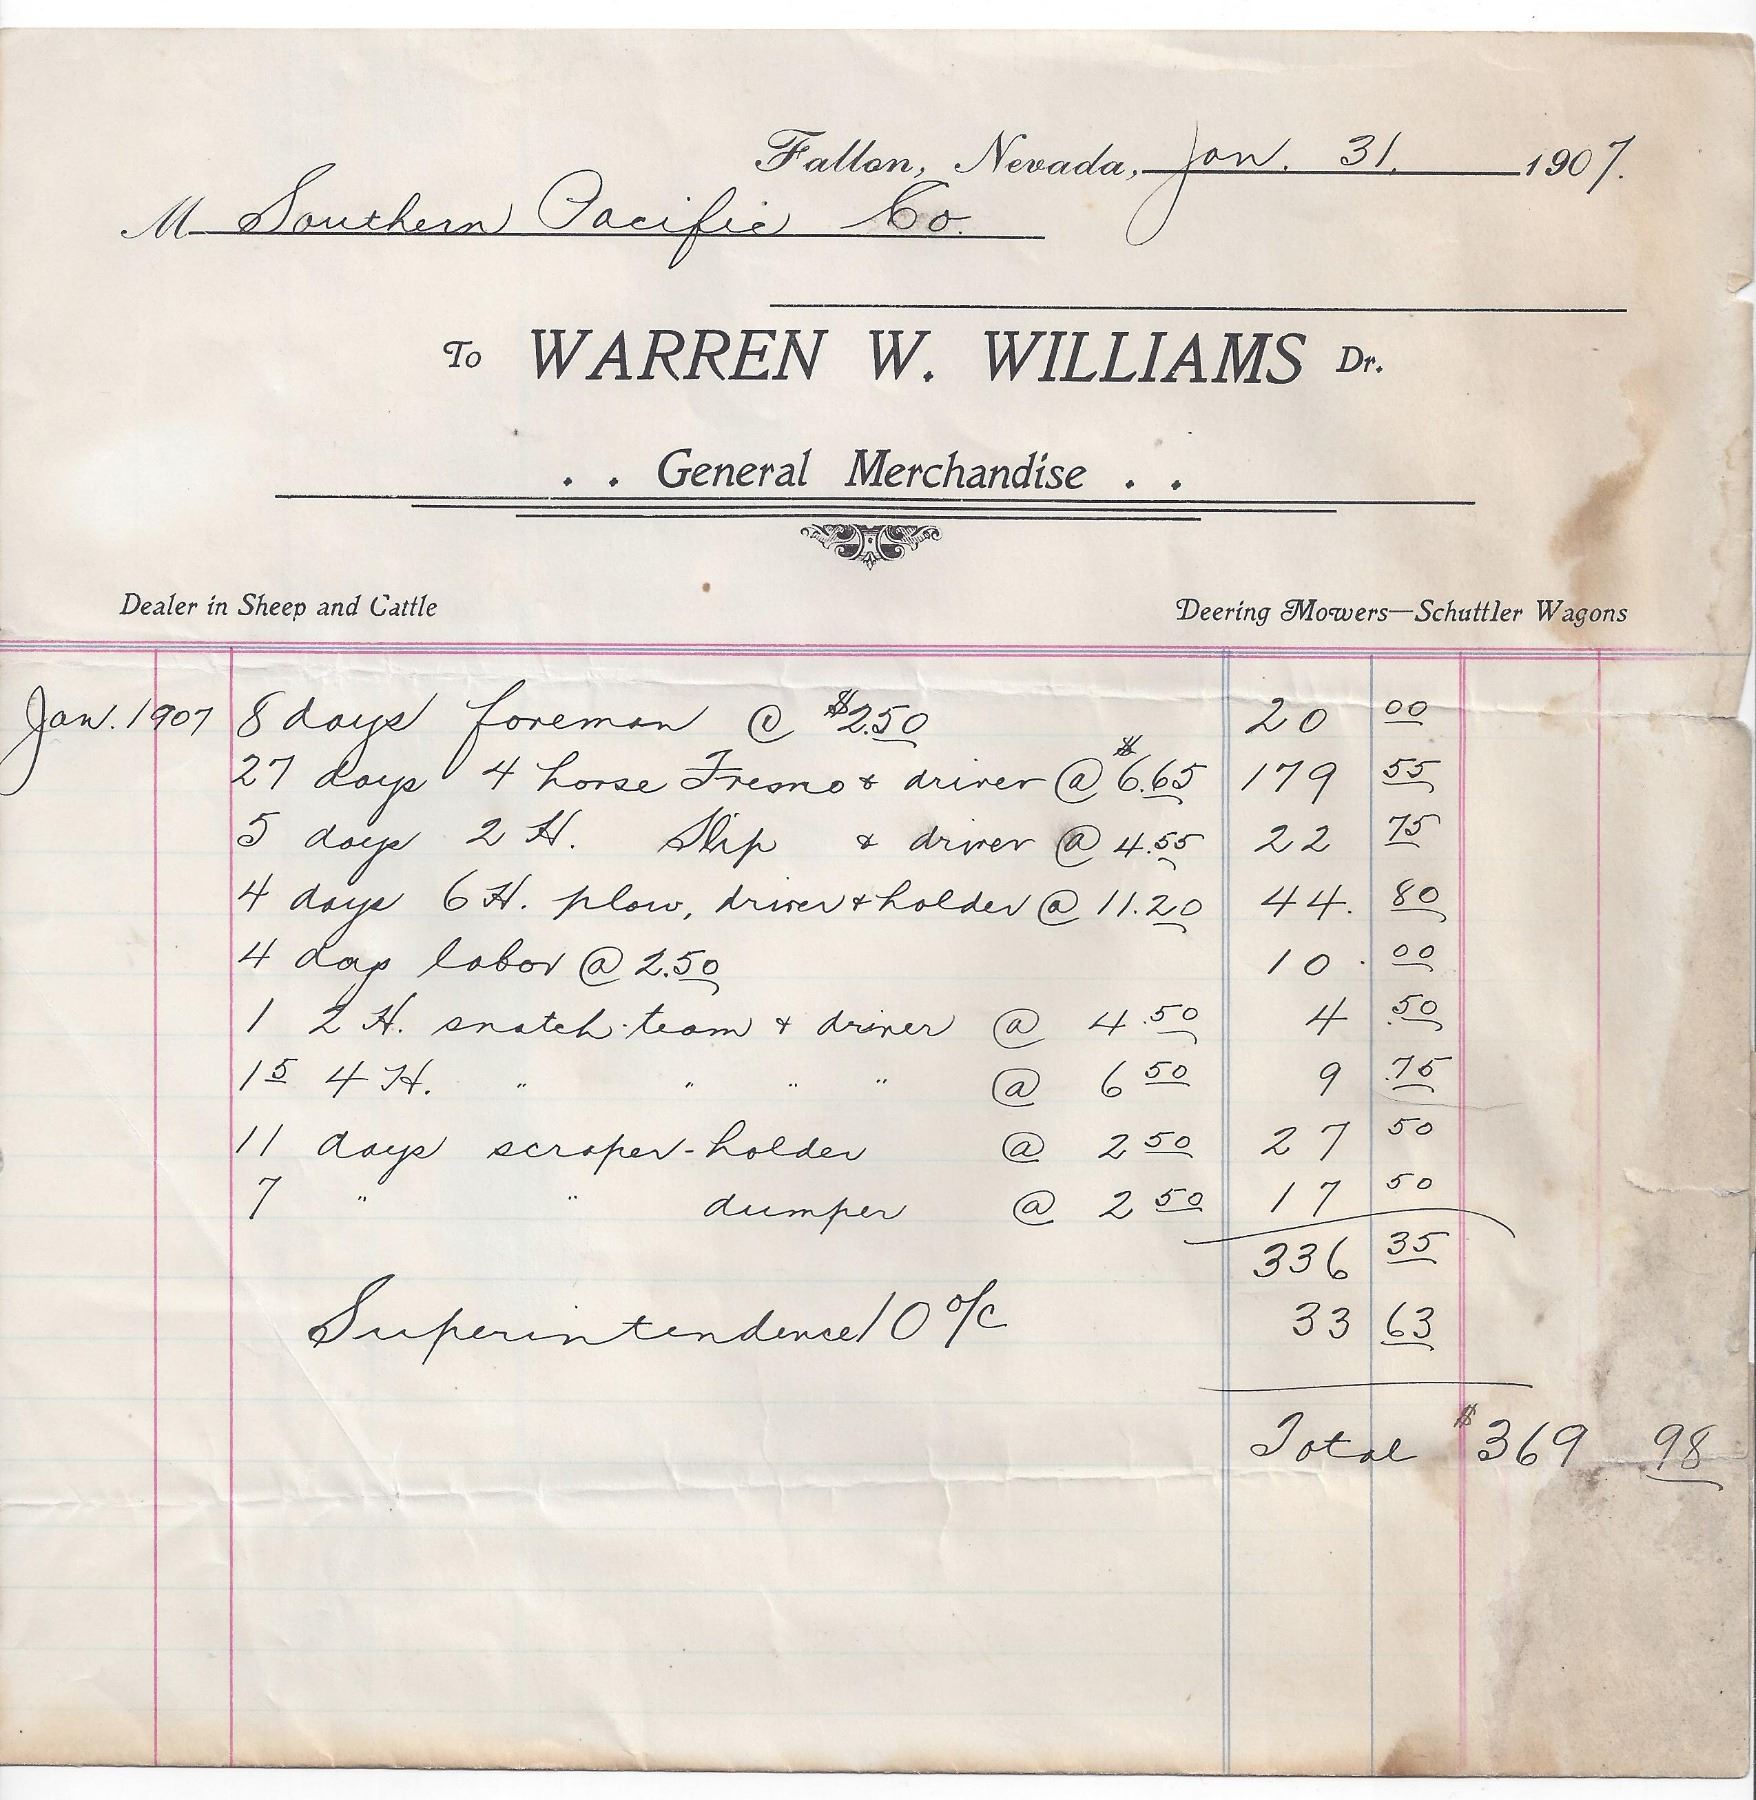 Fallon, Nevada, Jan. 31. 1907.
M Southern Pacific Co.
To WARREN W. WILLIAMS Dr.
. . General Merchandise . .
Dealer in Sheep and Cattle Deering Mowers—Schuttler Wagons
Jan. 1907 8 days foreman @ $2.50 20 00
27 days 4 horse Fresno & driver @ $6.65 179 55
5 days 2 H. Slip & driver @ 4.55 22 75
4 days 6 H. plow, driver & holder @ 11.20 44. 80
4 days labor @ 2.50 10. 00
1 2 H. snatch-team & driver @ 4.50 4 .50
1 5 4 H. " " " " @ 6 50 9 .75
11 days scraper-holder @ 2 50 27 50
7 " " dumper @ 2 50 17 50
336 35
Superintendence 10 % 33 63
Total $369 98